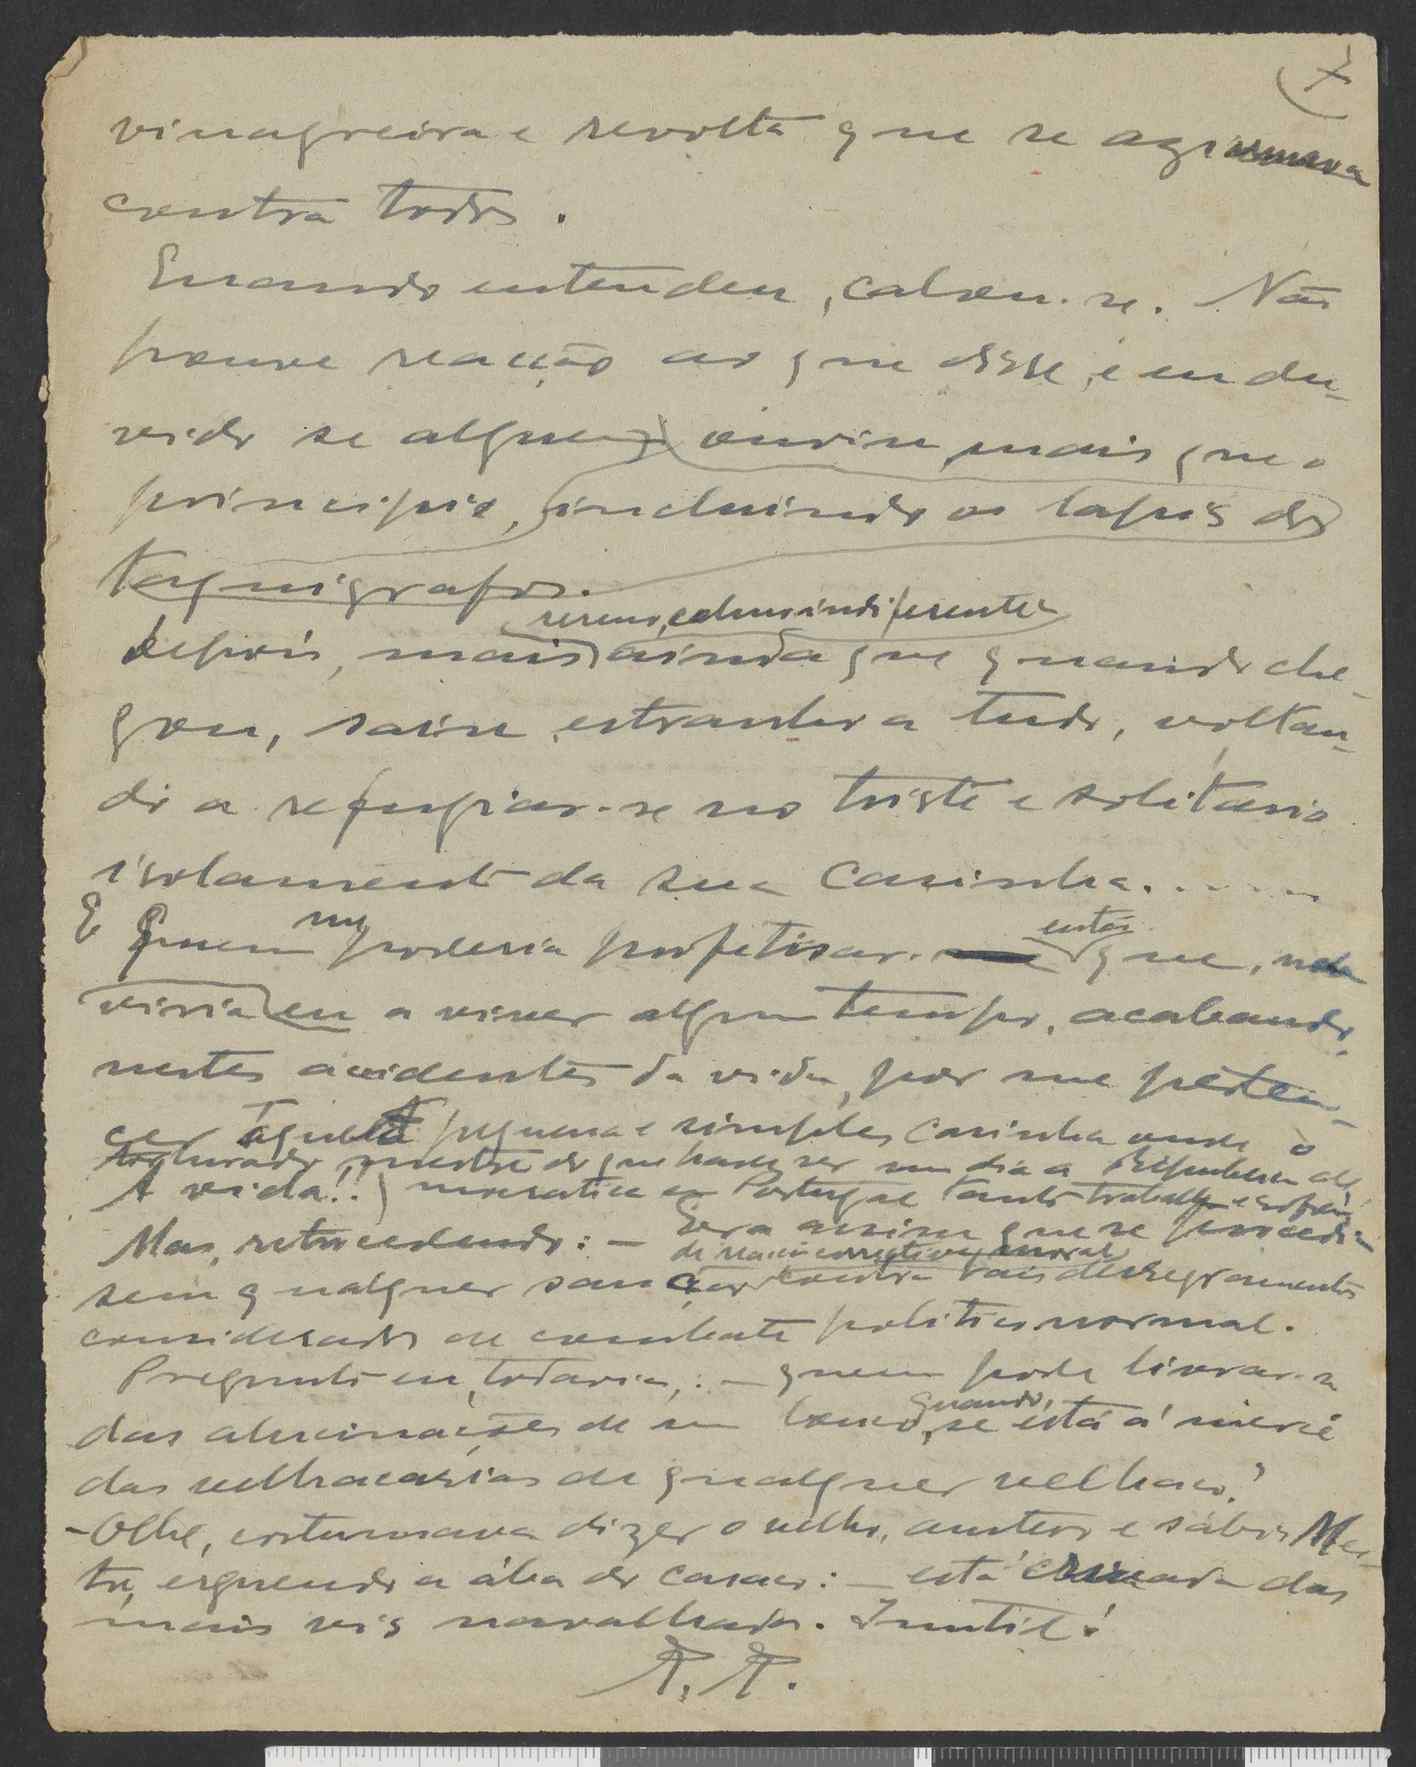 7
vinagreira e revolta que se
contra todos.
Quando entendeu, calou-se. Não
houve reacção ao que disse, e eu du-
vido se alguem ouviu mais que o
principio, incluindo os lapis dos
taquigrafos.
sereno, calmo indiferente
Depois, mais ainda que quando che-
gou, saiu, estranho a tudo, voltan-
do a refugiar-se no triste e solitario
isolamento da sua casinha.....
então
E Quem me poderia profetisar que,
viria eu a viver algum tempo, acabando,
nestes acidentes da vida, por me perten-
cer aquela pequena e simples casinha onde o
torturado mestre do que havia ser um dia a
A vida!! em Portugal tanto
Mas, retrocedendo: — Era assim que se procedia
moral
sem qualquer sanção contra tais desregramentos
considerados de combate politico normal.
Pregunto eu, todavia,: — quem pode livrar-se
quando,
das alucinações de um louco, se está á mercê
das velhacarias de qualquer velhaco?
- Olhe, costumava dizer o velho, austero e sabio Mes-
tre, erguendo a aba do casaco: — está das
mais vis navalhadas. Inutil!
A. A.